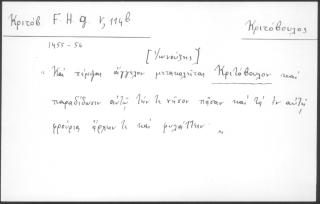 Κριτόβ F. H. g. V, 114b Κριτόβουλος
1455-56
[Ἰωνούζης]
"Καὶ πέμψας ἄγγελον μετακαλεῖται Κριτόβουλον καὶ
παραδίδωσιν αὐτῷ τήν τε νῆσον πᾶσαν καὶ τὰ ἐν αὐτῇ
φρούρια ἄρχειν τε καὶ φυλάττειν"